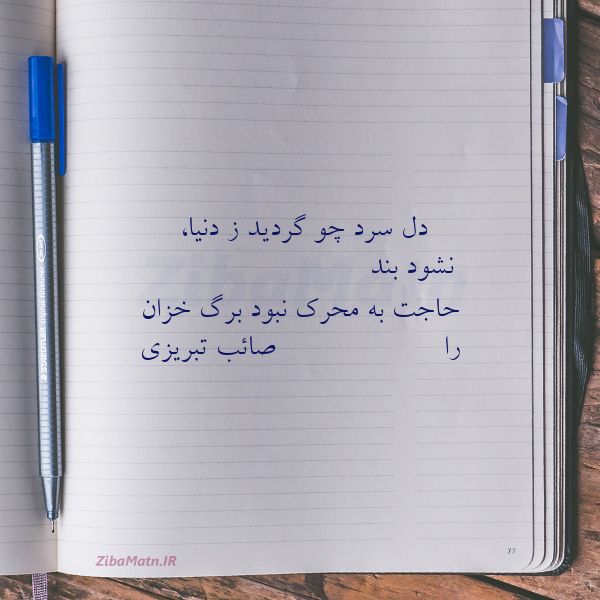 دل سرد چو گردید ز دنیا،
نشود بند
حاجت به محرک نبود برگ خزان
را صائب تبریزی
ZibaMatn
ZibaMatn.IR
77